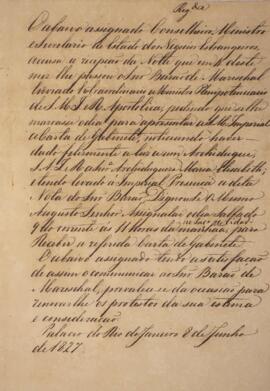 Reg.da
O abaixo assignado Conselheiro, Ministro
e Secretario de Estado dos Negocios Estrangeiros,
accusa a recepção da Nota que em 4 deste
mez lhe passou o Snr Barão de Mareschal
Enviado Extraordinario e Ministro Plenipotenciario
de S. M. I. e R. Apostolica, pedindo que se lhe
marcasse o dia para apresentar a S. M. o Imperador
a Carta de Gabinete, noticiando haver
dado felizmente a luz a um Archiduque
S. A. I. e R. a Snra Archiduqueza Maria Elisabeth,
e tendo levado á Imperial Presença a dita
Nota do Snr Barão, Dignou-se O Mesmo
Augusto Senhor Assignalar o dia Sabbado
9 do corrente ás 11 horas da manhaã, para
Receber a referida Carta de Gabinete.
O abaixo assignado tendo a satisfação
de assim o communicar ao Snr Barão de
Mareschal, prevalece-se da occasião para
renovar-lhe os protestos da sua estima
e consideração.
Palacio do Rio de Janeiro 8 de Junho
de 1827